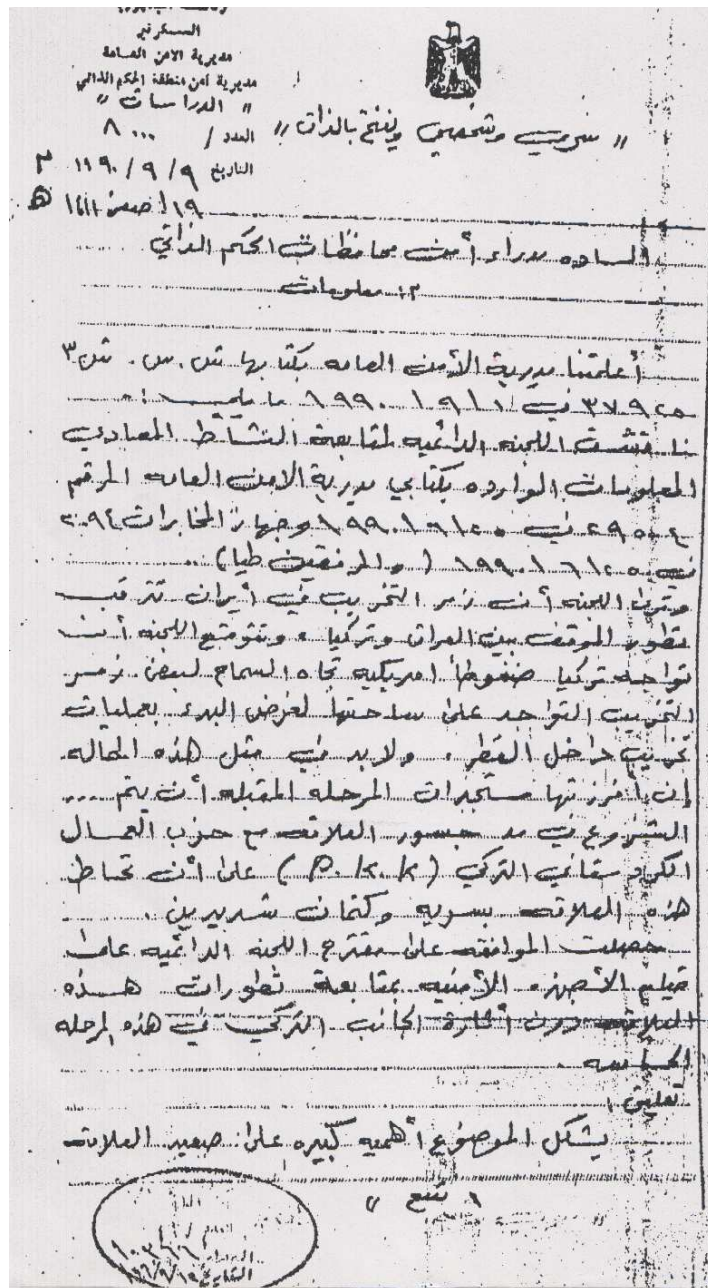 السكرتير
مديرية الامن العامة
مديرية أمن منطقة الحكم الذاتي
" الدراسات "
العدد / ٨٠٠٠
" سري وشخصي ويفتح بالذات "
التاريخ ٩ / ٩ / ١٩٩٠ م
١٩ / صفر / ١٤١١ هـ
الساده مدراء أمن محافظات الحكم الذاتي
م / معلومات
أعلمتنا مديرية الأمن العامه بكتابها ش.س. ش٣
٣٧٩٢٥ في ١ / ٩ / ١٩٩٠ ما يلي :ـ
ناقشت اللجنه الدائميه لمتابعة النشاط المعادي
المعلومات الوارده بكتابي مديرية الامن العامه المرقم
في ٢٠ / / ١٩٩٠ وجهاز المخابرات
في ٢٥ / ٦ / ١٩٩٠ ( والمرفقين طيا ) ..
وترى اللجنه أن زمر التخريب في أيران تترقب
تطور الموقف بين العراق وتركيا ، وتتوقع اللجنه أن
تواجه تركيا ضغوطاً امريكيه تجاه السماح لبعض زمر
التخريب التواجد على ساحتها لغرض البدء بعمليات
تخريب داخل القطر ، ولابد في مثل هذه الحاله
إن أفرزتها مستجدات المرحله المقبله أن يتم ....
الشروع في مد جسور العلاقه مع حزب العمال
الكردستاني التركي ( P.K.K ) على أن تحاط
هذه العلاقه بسريه وكتمان شديدين .
حصلت الموافقه على مقترح اللجنه الدائميه على
قيام الأجهزه الأمنيه بمتابعة تطورات هذه
العلاقه دون أثارة الجانب التركي في هذه المرحله
الحساسه .
تعليق .
يشكل الموضوع أهميه كبيره على صعيد العلاقه
" يتبع "